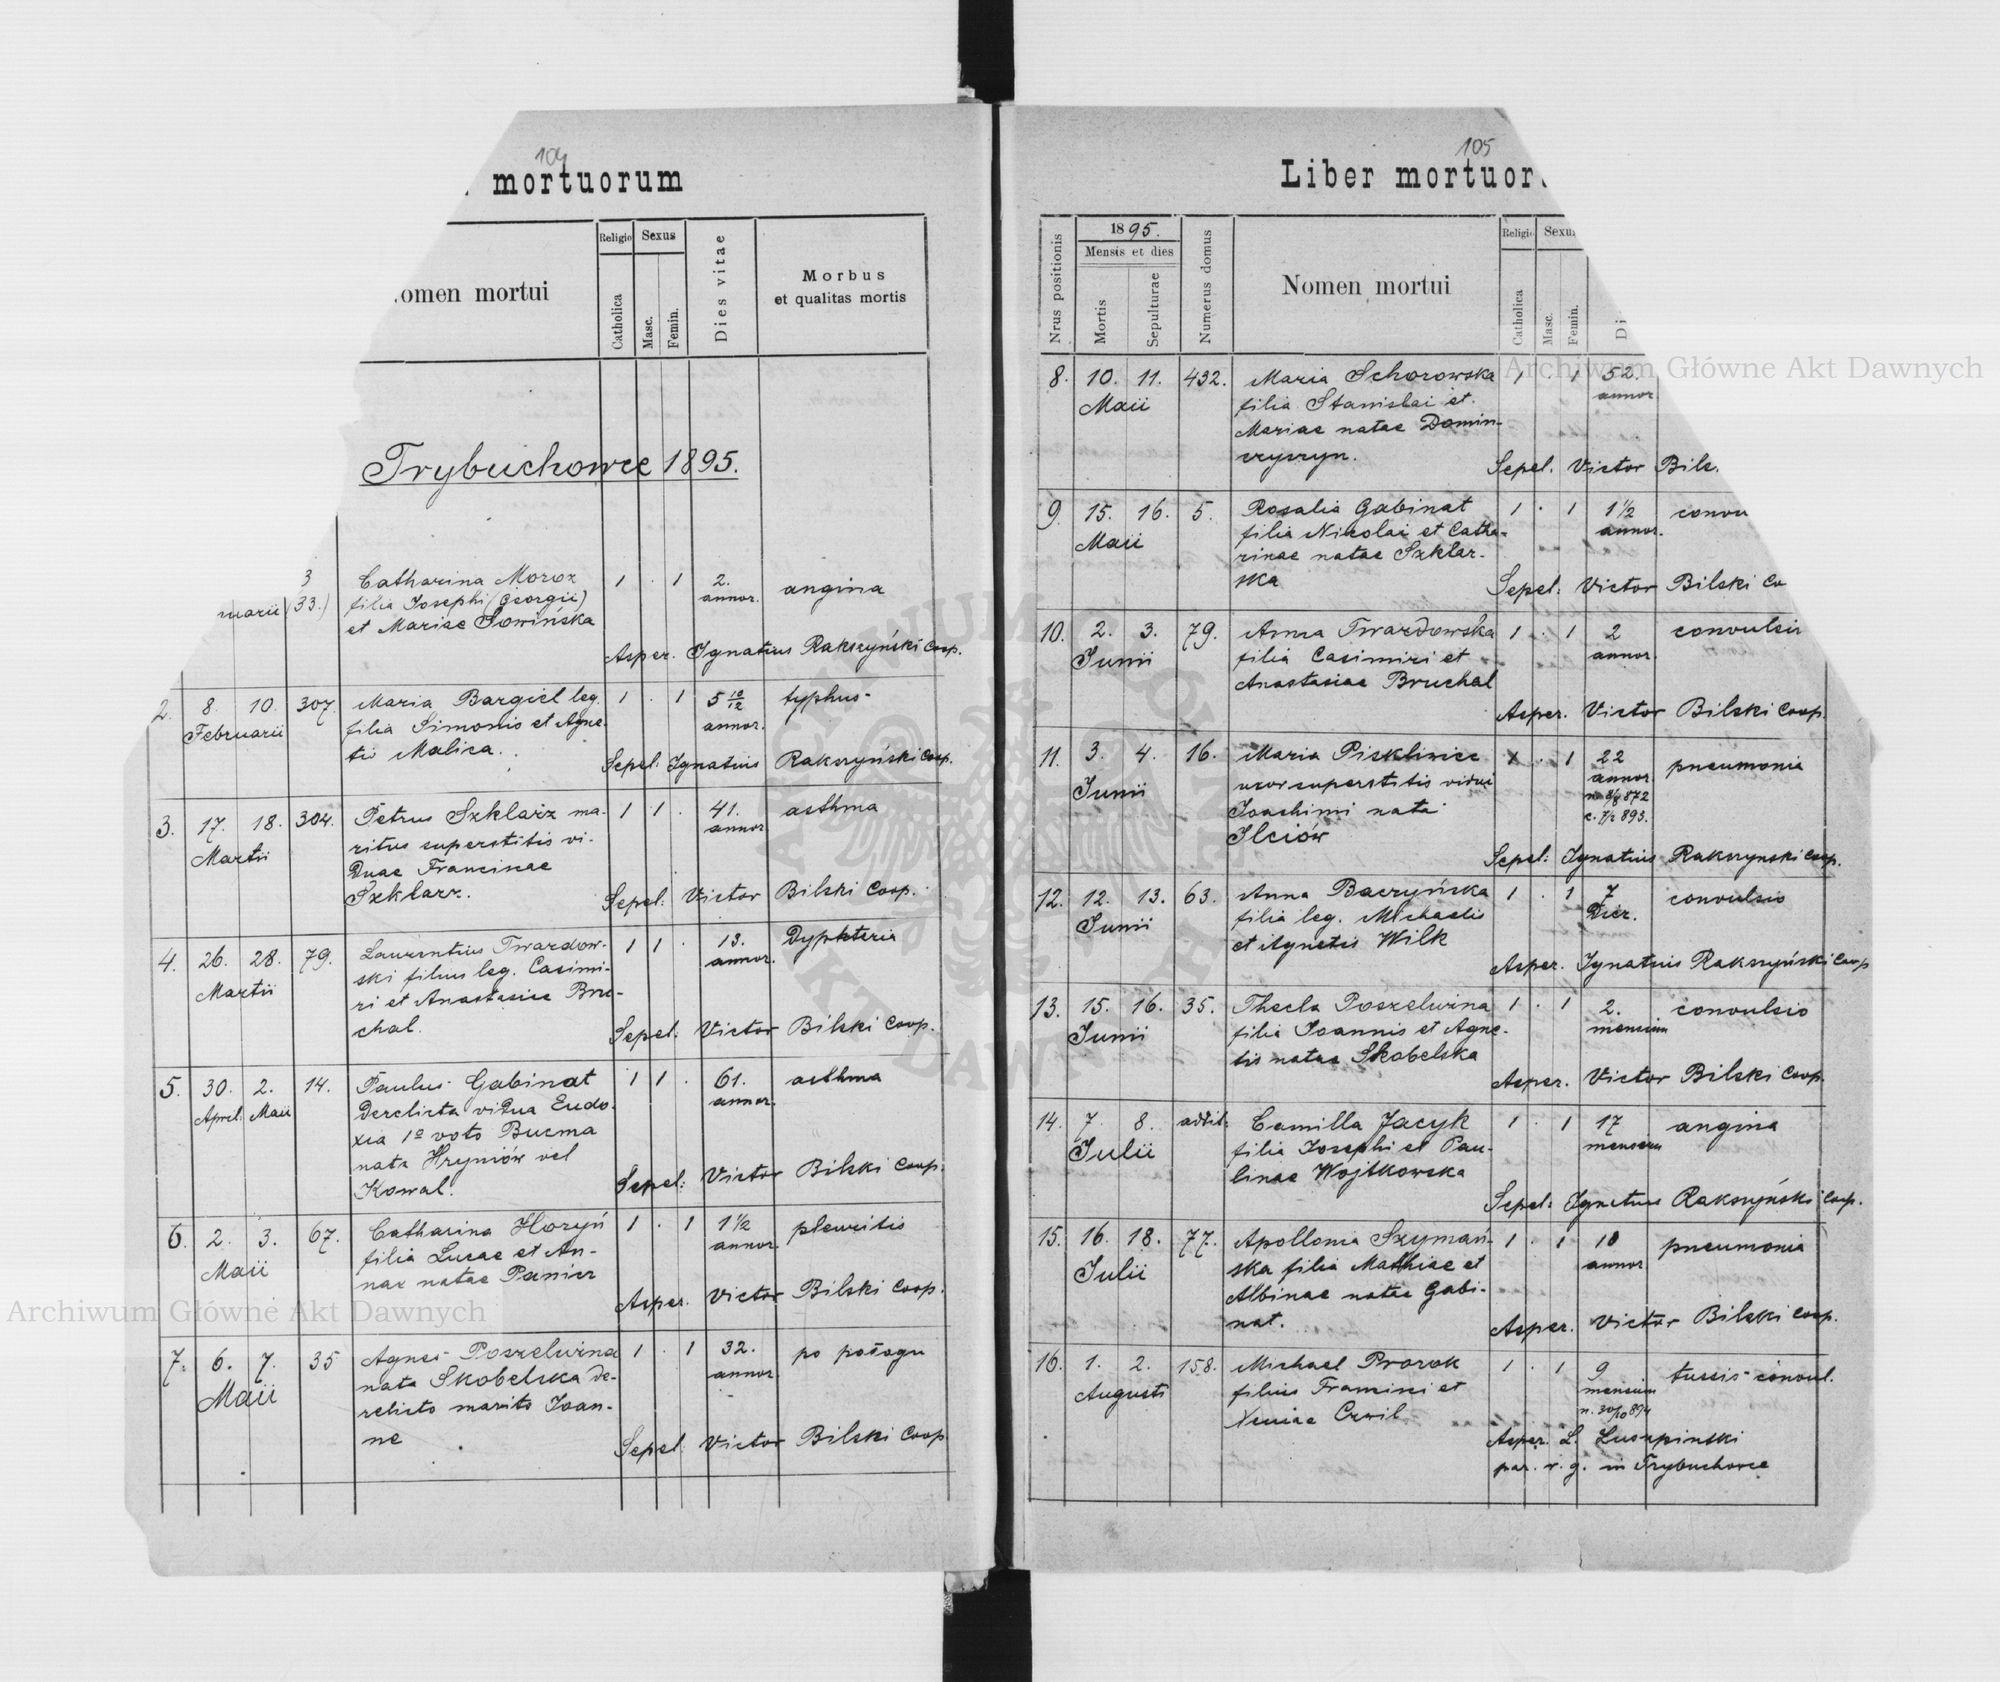 104
mortuorum
omen mortui
Religio
Catholica
Sexus
Masc.
Femin.
Dies vitae
Morbus
et qualitas mortis
Trybuchowce 1895.
3
marii (33.) Catharina Moroz 1 . 1 2. annor. angina
filia Josephi (Georgii)
et Mariae Sowińska
Asper. Ignatius Rakszyński Coop.
2. 8. 10. Februarii 307. Maria Bargiel leg. 1 . 1 5 10/12 annor. typhus
filia Simonis et Agne-
tis Malica.
Sepel. Ignatius Rakszyński Coop.
3. 17. 18. Martii 304. Petrus Szklarz ma- 1 1 . 41. annor. asthma
ritus superstitis vi-
duae Franciscae
Szklarz.
Sepel. Victor Bilski Coop.
4. 26. 28. Martii 79. Laurentius Twardow- 1 1 . 13. annor. Dyphteria
ski filius leg. Casimi-
ri et Anastasiae Bru-
chal.
Sepel. Victor Bilski Coop.
5. 30. April. 2. Maii 14. Paulus Gabinat 1 1 . 61. annor. asthma
derelicta vidua Eudo-
xia 1º voto Bucma
nata Hryniów vel
Kowal.
Sepel: Victor Bilski Coop.
6. 2. 3. Maii 67. Catharina Horyń 1 . 1 1 1/2 annor. pleuritis
filia Lucae et An-
nae natae Panier
Asper. Victor Bilski Coop.
7. 6. 7. Maii 35 Agnes Poszelwina 1 . 1 32. annor. po połogu
nata Skobelska de-
relicto marito Joan-
ne
Sepel. Victor Bilski Coop.
105
Liber mortuor
Nrus positionis
1895.
Mensis et dies
Mortis
Sepulturae
Numerus domus
Nomen mortui
Religi
Catholica
Sexu
Masc.
Femin.
Di
8. 10. 11. Maii 432. Maria Schorowska 1 . 1 52. annor
filia Stanislai et
Mariae natae Domin-
czyszyn.
Sepel. Victor Bils
9. 15. 16. Maii 5. Rosalia Gabinat 1 . 1 1 1/2 annor. convu
filia Nicolai et Catha-
rinae natae Szklar-
ska
Sepel: Victor Bilski Co
10. 2. 3. Junii 79. Anna Twardowska 1 . 1 2 annor. convulsio
filia Casimiri et
Anastasiae Bruchal
Asper. Victor Bilski Coop.
11. 3. 4. Junii 16. Maria Piskliwiec x . 1 22 annor n. 8/8 872 c. 7/2 893. pneumonia
uxor superstitis vidui
Joachimi nata
Ilciów
Sepel: Ignatius Rakszynski Coop.
12. 12. 13. Junii 63. Anna Baczyńska 1 . 1 7 Dier. convulsio
filia leg. Michaelis
et Agnetis Wilk
Asper. Ignatius Rakszyński Coop
13. 15. 16. Junii 35. Thecla Poszelwina 1 . 1 2. mensium convulsio
filia Joannis et Agne-
tis natae Skobelska
Asper. Victor Bilski Coop.
14. 7. 8. Julii addit. Camilla Jacyk 1 . 1 17 mensium angina
filia Josephi et Pau-
linae Wojtkowska
Sepel: Ignatius Rakszyński Coop.
15. 16. 18. Julii 77. Apollonia Szymań- 1 . 1 10 annor pneumonia
ska filia Mathiae et
Albinae natae Gabi-
nat.
Asper. Victor Bilski Coop.
16. 1. 2. Augusti 158. Michael Prorok 1 . 1 9 mensium n. 30/10 894 tussis convul.
filius Francisci et
Czwil
Asper. L.
par. r. g. in Trybuchowce
Archiwum Główne Akt Dawnych
Archiwum Główne Akt Dawnych